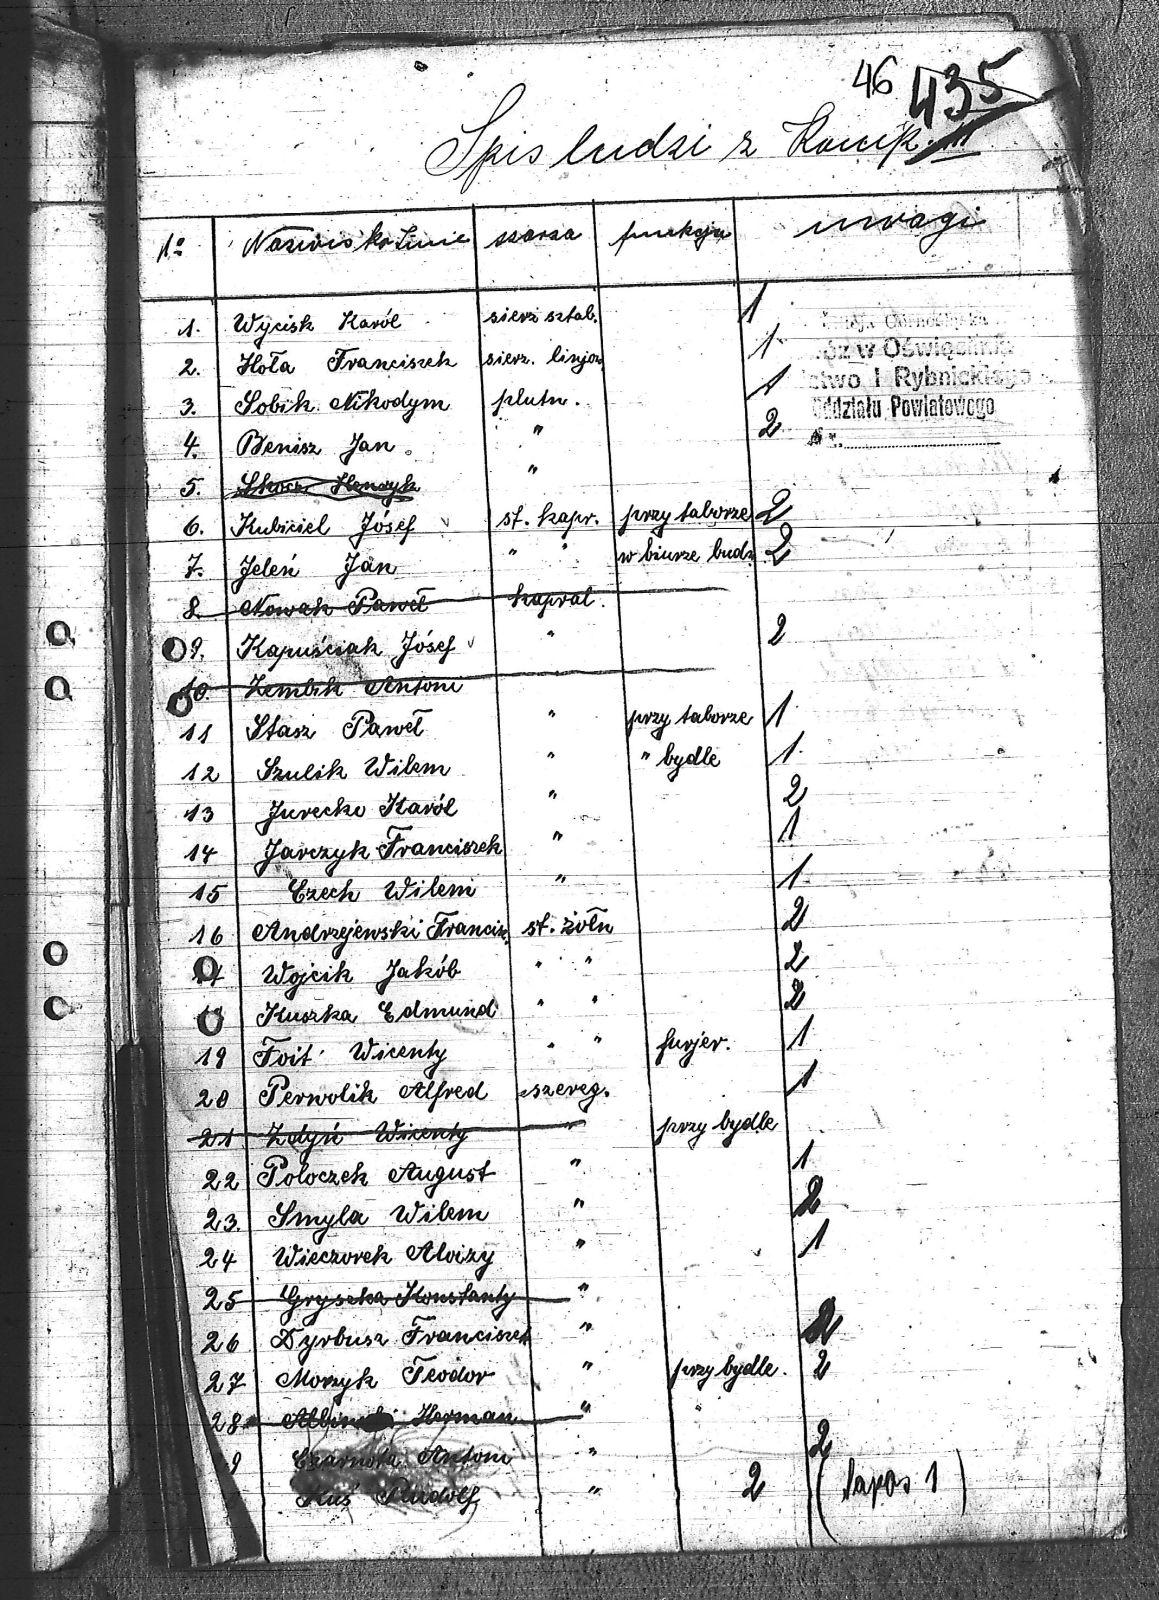 46 435
Spis ludzi z
No Nazwisko Imie szarża funkcja uwagi
1. Wycisk Karól sierż sztab. 1
2. Hoła Franciszek sierż. linjow 1
3. Sobik Nikodym plutn. 1
4. Benisz Jan " 2
5. Henryk "
6. Kubiciel Jósef st. kapr. przy taborze 2
7. Jeleń Jan " " w biurze budz. 2
8. Nowak Paweł kapral.
9. Kapuściak Jósef " 2
10. Zembik Antoni "
11 Stasz Paweł " przy taborze 1
12 Szulik Wilem " " bydle 1.
13 Jurecko Karól " 2
14 Jarczyk Franciszek " 1
15 Czech Wilem " 1
16 Andrzejewski Francisz. st. żołn 2
17 Wojcik Jakób " " 2
18 Kuszka Edmund " " 2
19 Foit Wicenty " " furjer. 1
20 Perwolik Alfred szereg. 1
21 Zdyń Wicenty " przy bydle
22 Poloczek August " 1
23. Smyla Wilem " 2
24 Wieczorek Aloizy " 1
25 Konstanty "
26 Dyrbusz Franciszek " 2
27 Morzyk Teodor " przy bydle. 2
28 Herman "
9 Czarnota Antoni " 2
Kuś Rudolf " 2 (Zapas 1)
w Oświęcimiu
I Rybnickiego
Oddziału Powiatowego